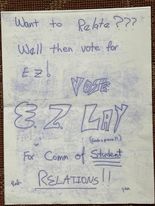 Want to Relate???
Well then vote for
EZ!
VOTE
E.Z. LAY
For Comm of Student
RELATIONS!!